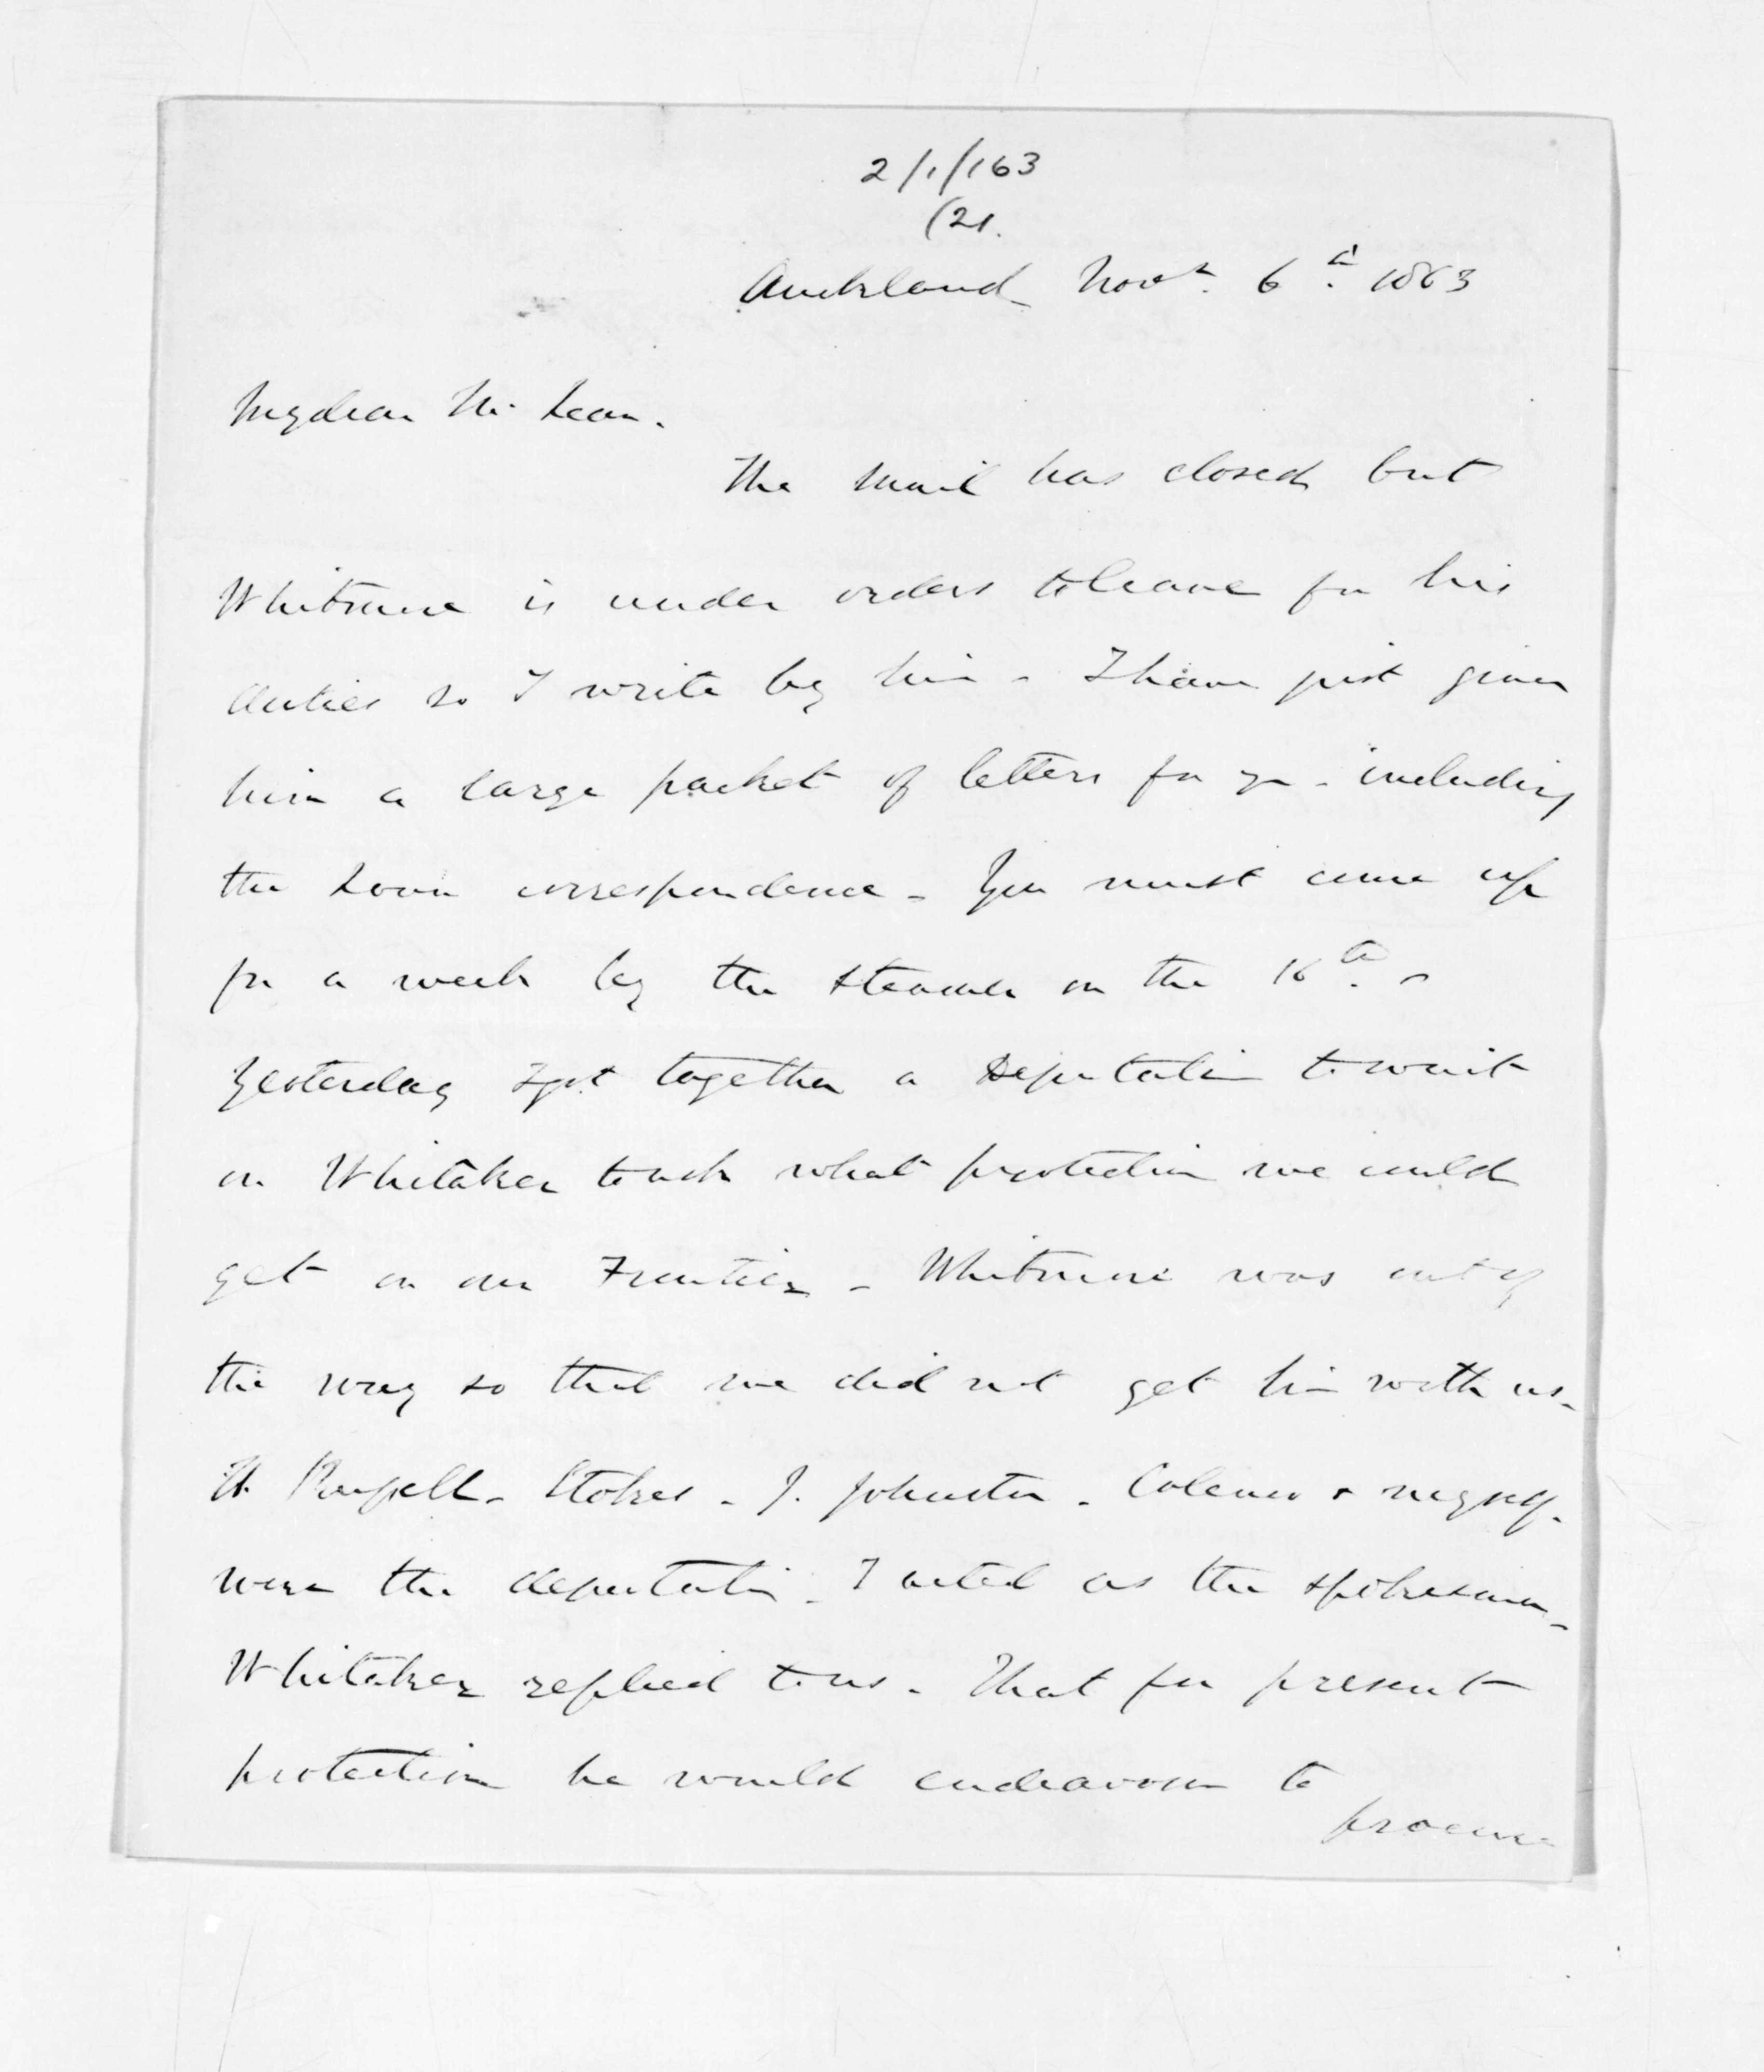 2/1/163
(21.
Auckland Novr. 6th. 1863
My dear McLean.
The Mail has closed but
Whitmore is under orders to leave for his
duties so I write by him - I have just given
him a large packet of letters for you - including
the Loan correspondence - You must come up
for a week by the steamer on the 16th. -
Yesterday I got together a Deputation to wait
on Whitaker to ask what protection we could
get on our Frontier - Whitmore was out of
the way so that we did not get him with us -
H. Russell - Stokes - J. Johnston - Colenso & myself -
were the deputation - I acted as the spokesman -
Whitaker replied to us - That for present
protection he would endeavour to
procure